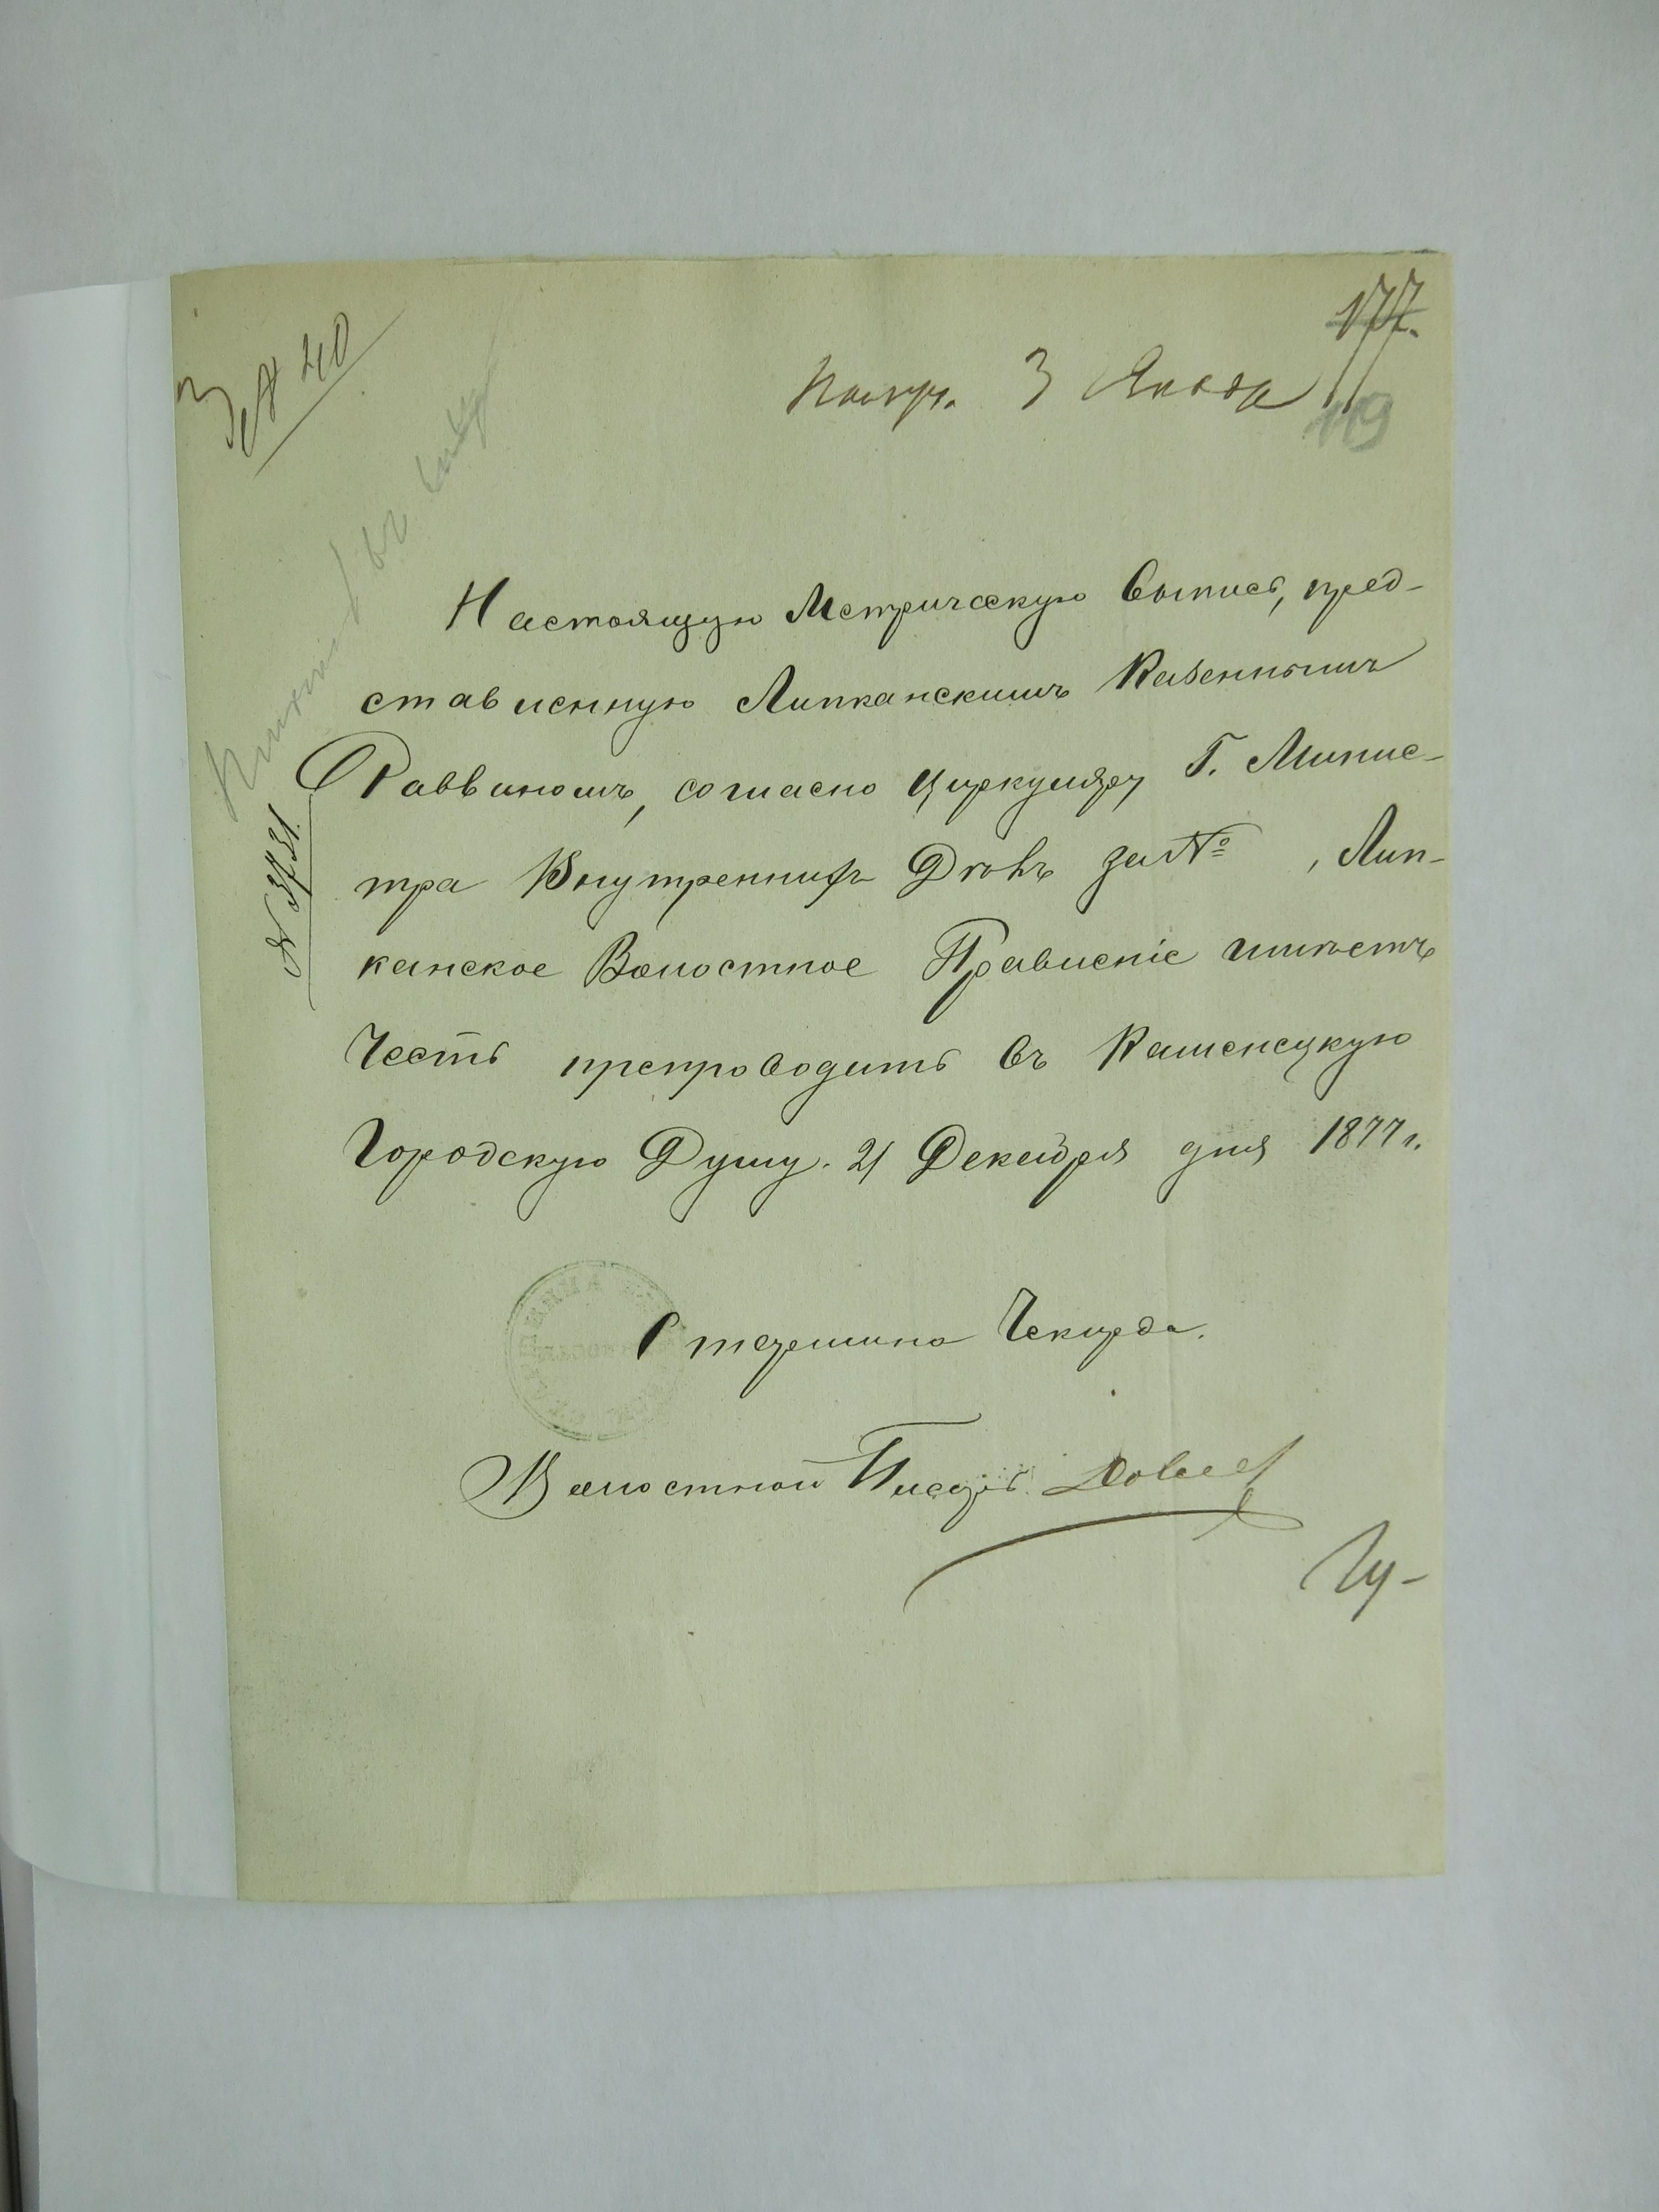 177.
№ 40
Получ. 3 Января
119
Настоящую Метрическую Выпись, пред-
ставленную Липканскимъ Казеннымъ
Раввиномъ, согласно циркуляру Г. Минис-
тра Внутреннихъ Дѣлъ за № , Лип-
канское Волостное Правленіе имѣетъ
Честь препроводить въ Каменецкую
Городскую Думу. 21 Декабря дня 1877 г.
Старшина Чекирда.
Волостной Писарь